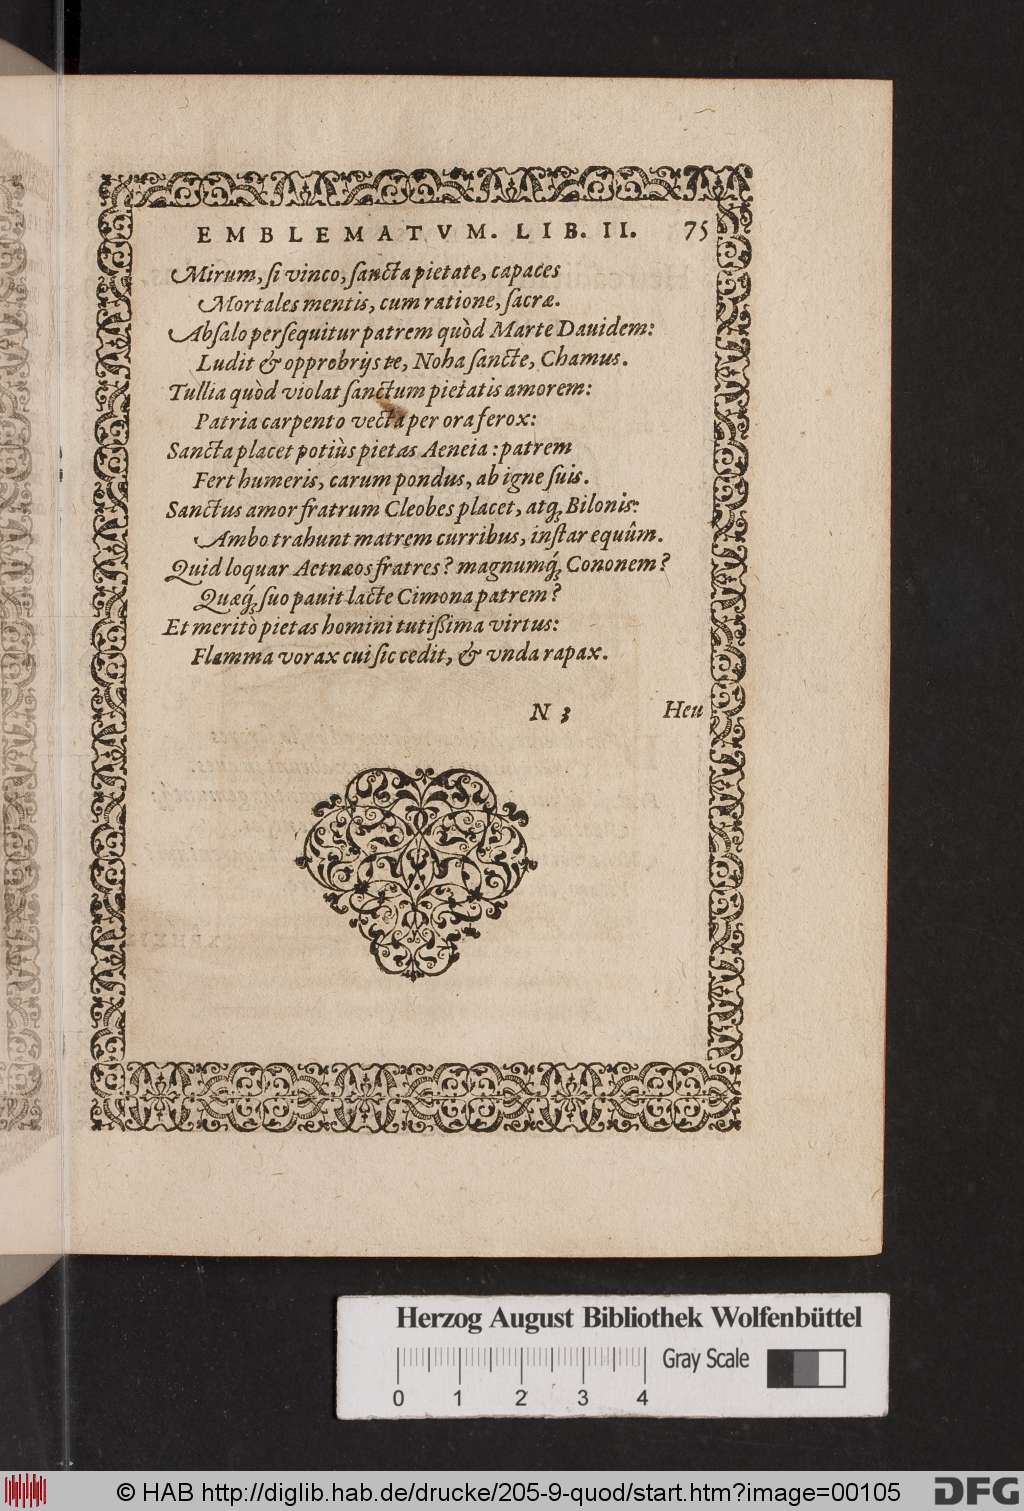 EMBLEMATVM. LIB. II. 75
Mirum, si vinco, sancta pietate, capaces
Mortales mentis, cum ratione, sacræ.
Absalo persequitur patrem quòd Marte Dauidem:
Ludit & opprobrijs te, Noha sancte, Chamus.
Tullia quòd violat sanctum pietatis amorem:
Patria carpento vecta per ora ferox:
Sancta placet potiùs pietas Aeneia: patrem
Fert humeris, carum pondus, ab igne suis.
Sanctus amor fratrum Cleobes placet, atq; Bilonis:
Ambo trahunt matrem curribus, instar equûm.
Quid loquar Aetnæos fratres? magnumq́; Cononem?
Quæq́; suo pauit lacte Cimona patrem?
Et meritò pietas homini tutißima virtus:
Flamma vorax cui sic cedit, & vnda rapax.
N 3 Heu
Herzog August Bibliothek Wolfenbüttel
Gray Scale
0 1 2 3 4
© HAB http://diglib.hab.de/drucke/205-9-quod/start.htm?image=00105
DFG